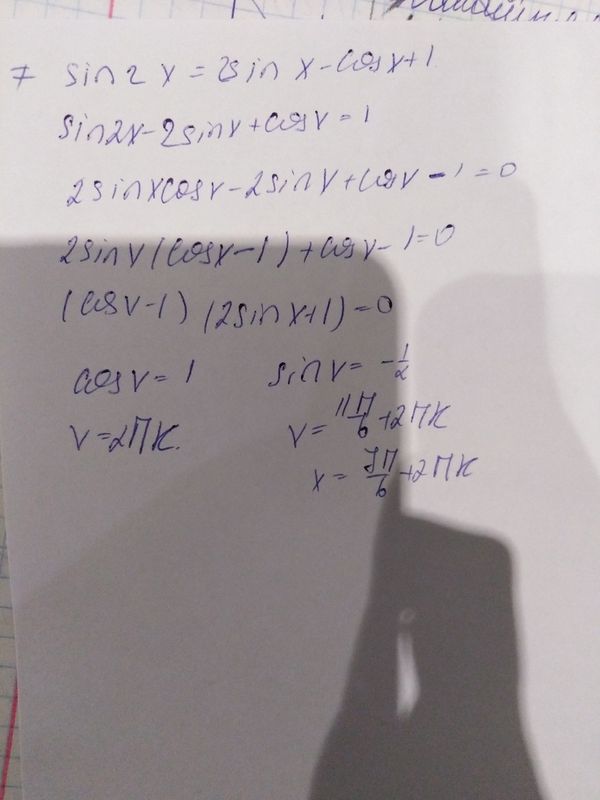 7 sin2x = 2sin x - cosx + 1
sin2x - 2sinx + cosx = 1
2sinxcosx - 2sinx + cosx - 1 = 0
2sinx(cosx - 1) + cosx - 1 = 0
(cosx - 1) (2sinx + 1) = 0
cosx = 1 sinx = -1/2
x = 2πk. x = 11π/6 + 2πk
x = 7π/6 + 2πk